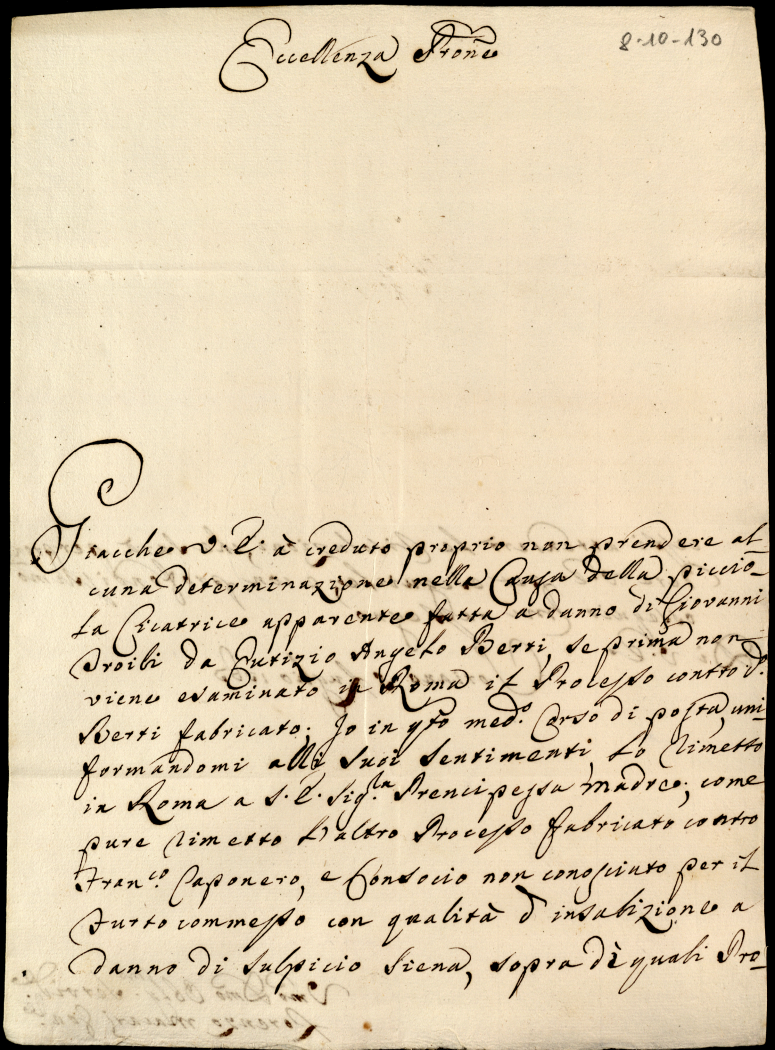 8-10-130
Eccellenza Prone
Giacche V. E. à creduto proprio non prendere al
cuna determinazione nella Causa della piccio-
la Cicatrice apparente fatta a danno di Giovanni
Troili da Eutizio Angelo Berti, se prima non
viene esaminato in Roma il Processo contro d.o
Berti fabricato; Io in qsto med.o Corso di posta, uni-
formandomi alli suoi sentimenti, lo rimetto
in Roma a S. E. Sig.ra Prencipessa madre; come
pure rimetto l'altro Processo fabricato contro
Fran.co Caponero, e Consocio non conosciuto per il
Furto commesso con qualità d'insalizione a
danno di Sulpicio Siena, sopra dè quali Pro-